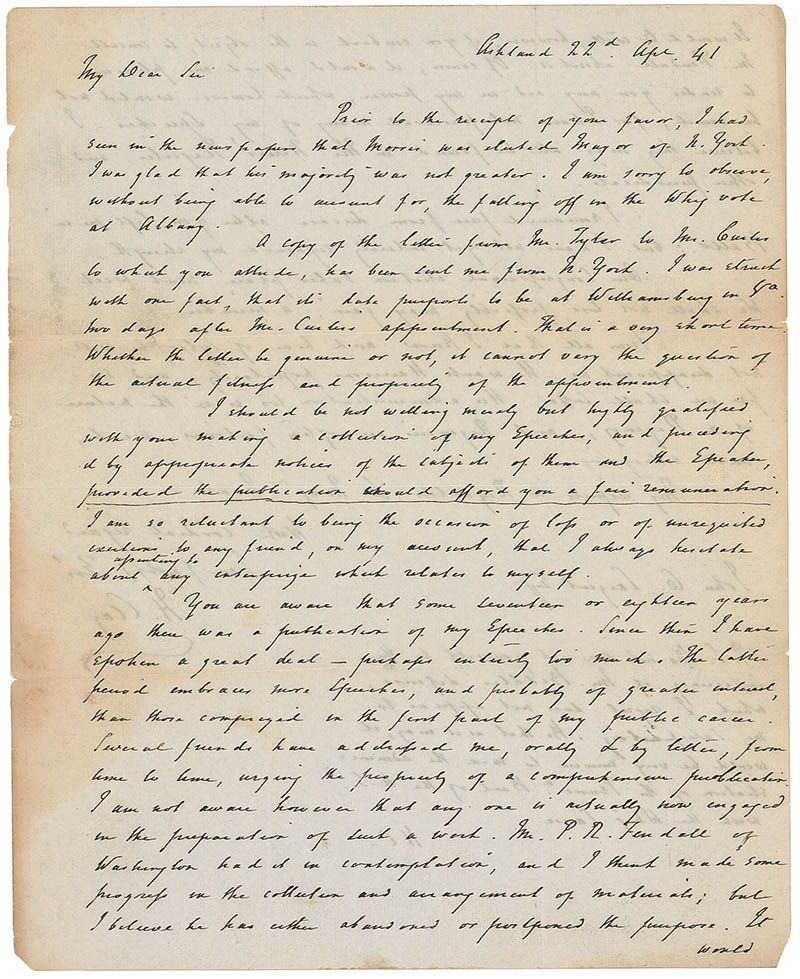 Ashland 22d. Apl. 41
My Dear Sir
Prior to the receipt of your favor, I had
seen in the newspapers that Morris was elected Mayor of N. York.
I was glad that his majority was not greater. I am sorry to observe,
without being able to account for, the falling off in the Whig vote
at Albany.
A copy of the letter from Mr. Tyler to Mr. Curtis
to which you allude, has been sent me from N. York. I was struck
with one fact, that its date purports to be at Williamsburg in Va.
two days after Mr. Curtis's appointment. That is a very short time.
Whether the letter be genuine or not, it cannot vary the question of
the actual fitness and propriety of the appointment.
I should be not willing merely but highly gratified
with your making a collection of my Speeches, and preceding
d by appropriate notices of the subjects of them and the Speaker,
provided the publication should afford you a fair remuneration.
I am so reluctant to being the occasion of loss or of unrequited
exertions to any friend, on my account, that I always hesitate
assenting to
about ^ any enterprize which relates to myself.
You are aware that some seventeen or eighteen years
ago there was a publication of my Speeches. Since then I have
spoken a great deal — perhaps entirely too much. The latter
period embraces more Speeches, and probably of greater interest,
than those comprized in the first part of my public career.
Several friends have addressed me, orally & by letter, from
time to time, urging the propriety of a comprehensive publication.
I am not aware however that any one is actually now engaged
in the preparation of such a work. Mr. P. R. Fendall of
Washington had it in contemplation, and I think made some
progress in the collection and arrangement of materials; but
I believe he has either abandoned or postponed the purpose. It
would